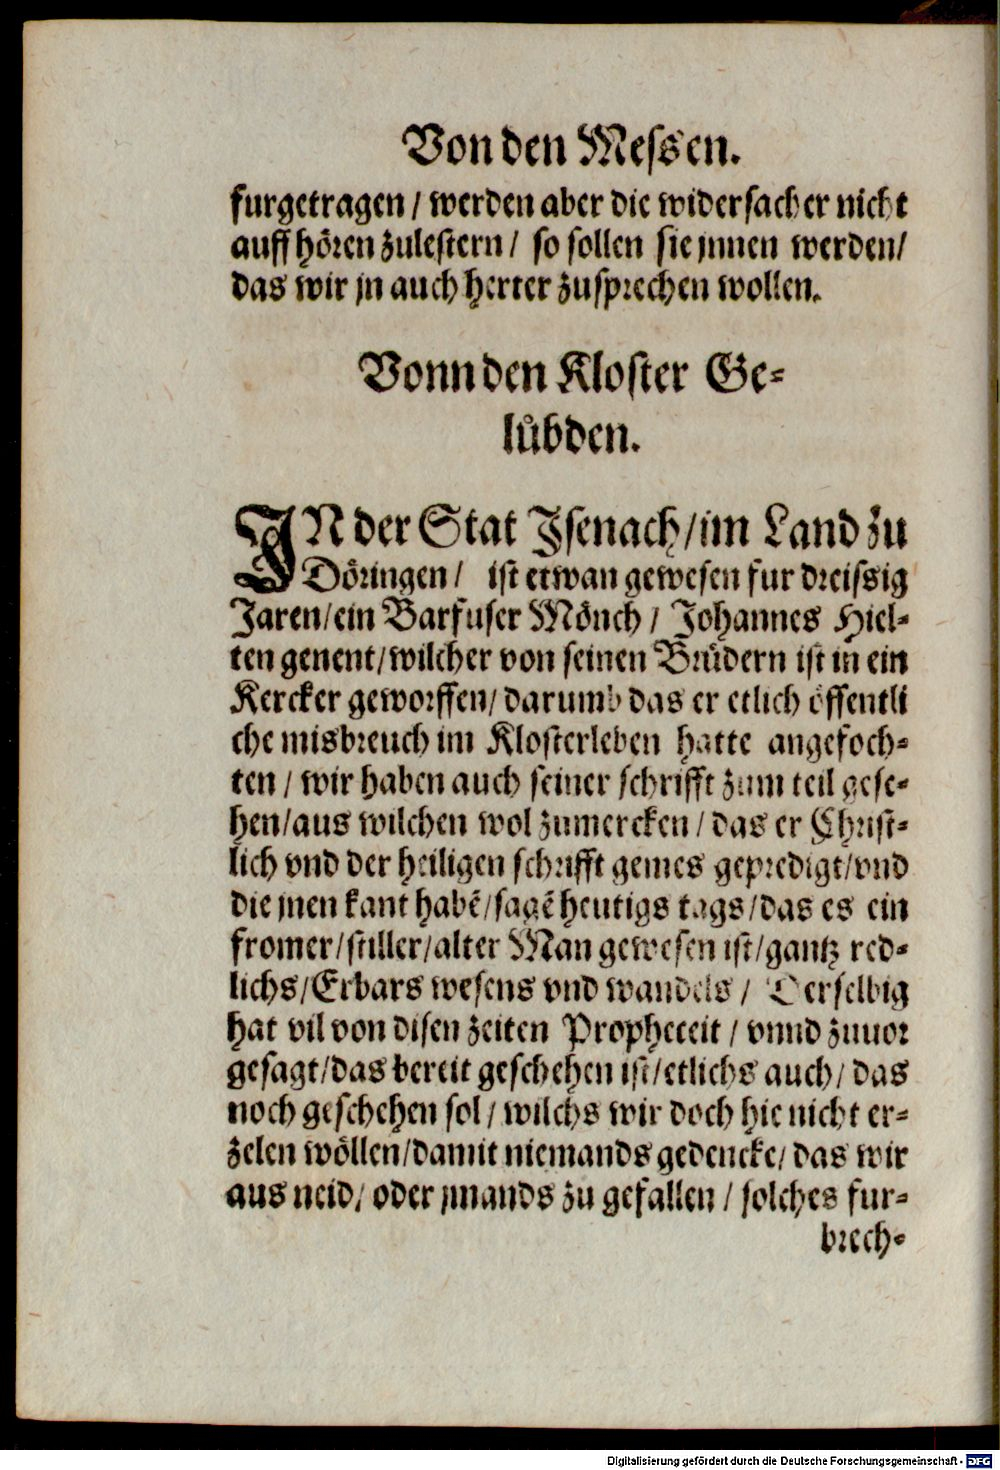 Von den Messen.
furgetragen / werden aber die widersacher nicht
auff hören zulestern / so sollen sie jnnen werden/
das wir jn auch herter zusprechen wollen.
Vonn den Kloster Ge-
lůbden.
IN der Stat Isenach/im Land zu
Döringen / ist etwan gewesen fur dreissig
Jaren/ein Barfuser Mönch / Johannes Hiel-
ten genent/wilcher von seinen Brůdern ist in ein
Kercker geworffen/ darumb das er etlich öffentli
che misbreuch im Klosterleben hatte angefoch-
ten / wir haben auch seiner schrifft zum teil gese-
hen/aus wilchen wol zumercken / das er Christ-
lich vnd der heiligen schrifft gemes gepredigt/vnd
die jnen kant habē/sagē heutigs tags/das es ein
fromer/stiller/alter Man gewesen ist/gantz red-
lichs/Erbars wesens vnd wandels / Derselbig
hat vil von disen zeiten Propheceit / vnnd zuuor
gesagt/das bereit geschehen ist/etlichs auch/ das
noch geschehen sol/ wilchs wir doch hie nicht er-
zelen wöllen/damit niemands gedencke/ das wir
aus neid/ oder jmands zu gefallen / solches fur-
brech-
Digitalisierung gefördert durch die Deutsche Forschungsgemeinschaft - DFG